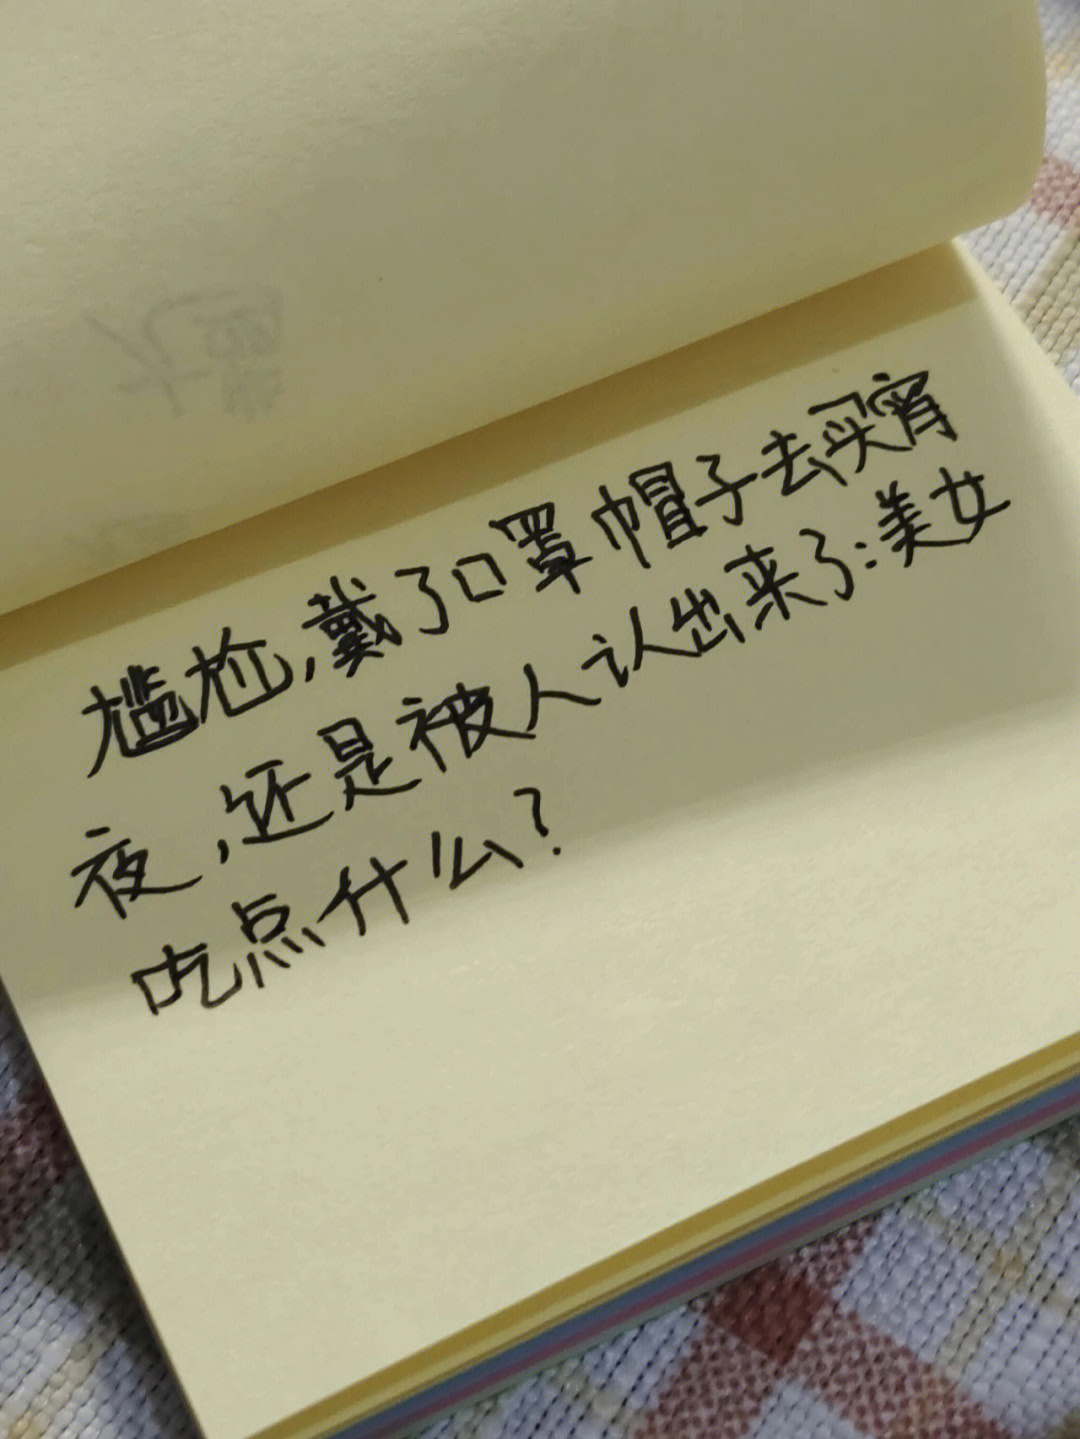 尴尬,戴了口罩帽子去买宵
夜,还是被人认出来了:美女
吃点什么?